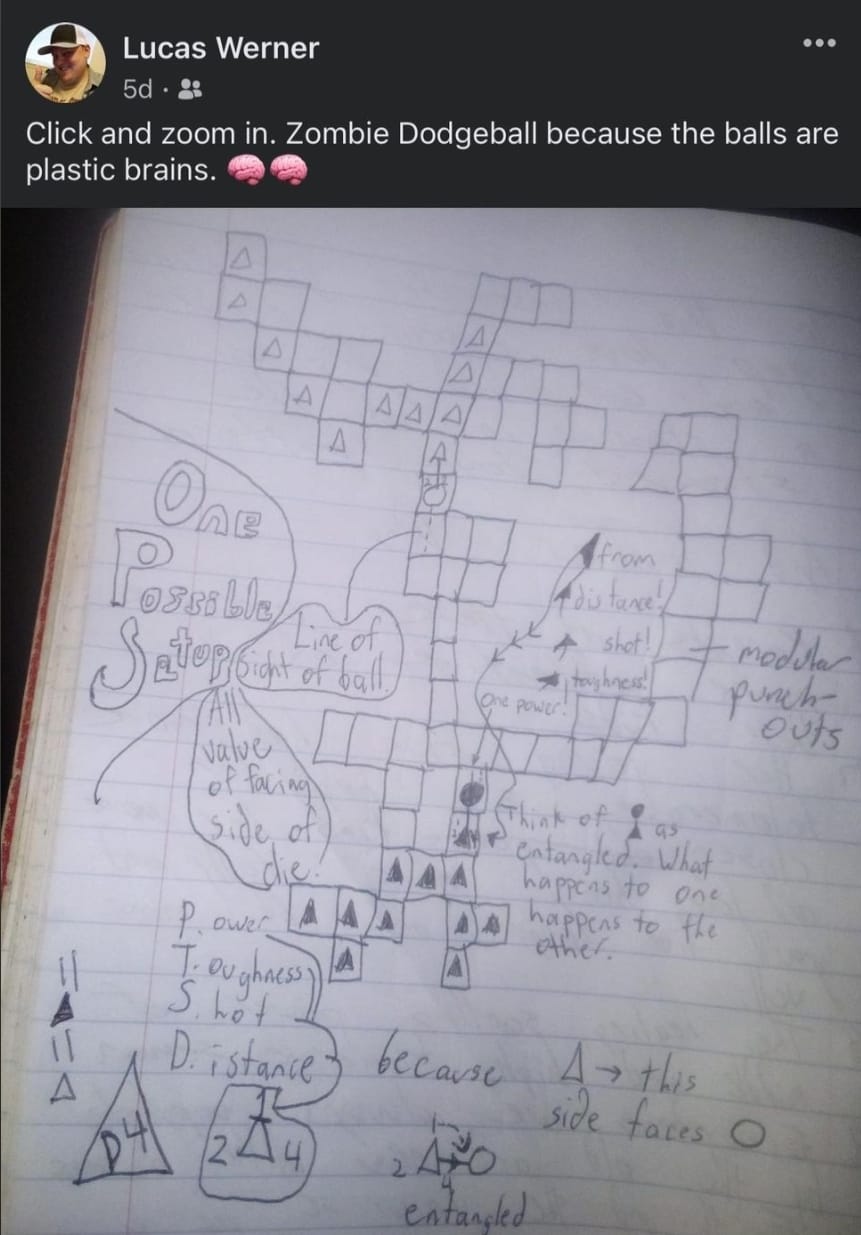 Lucas Werner
5d
Click and zoom in. Zombie Dodgeball because the balls are
plastic brains. 🧠🧠
One
Possible
Setup
Line of
Sight of ball.
All
value
of facing
side of
die.
from
distance!
shot!
toughness!
One power!
modular
punch-
outs
Think of
as
entangled. What
happens to one
happens to the
other.
P. ower
T. oughness
S. hot
D. istance
because
Δ → this
side faces O
D4
1
2 Δ 4
1
2 Δ O
4
entangled